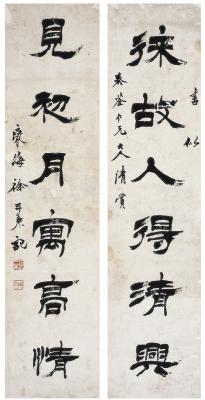 徠故人得清興
書似
荃仁兄大人清賞
見初月寓高情
褎海徐三庚記